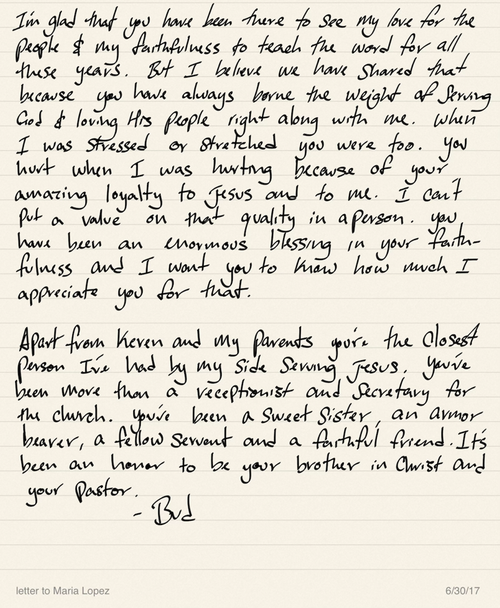 I'm glad that you have been there to see my love for the
people & my faithfulness to teach the word for all
these years. But I believe we have shared that
because you have always borne the weight of serving
God & loving His people right along with me. When
I was stressed or stretched you were too. You
hurt when I was hurting because of your
amazing loyalty to Jesus and to me. I can't
put a value on that quality in a person. You
have been an enormous blessing in your faith-
fulness and I want you to know how much I
appreciate you for that.
Apart from Keren and my parents you're the closest
person I've had by my side serving Jesus. You've
been more than a receptionist and secretary for
the church. You've been a sweet sister, an armor
bearer, a fellow servant and a faithful friend. It's
been an honor to be your brother in Christ and
your pastor.
- Bud
letter to Maria Lopez
6/30/17